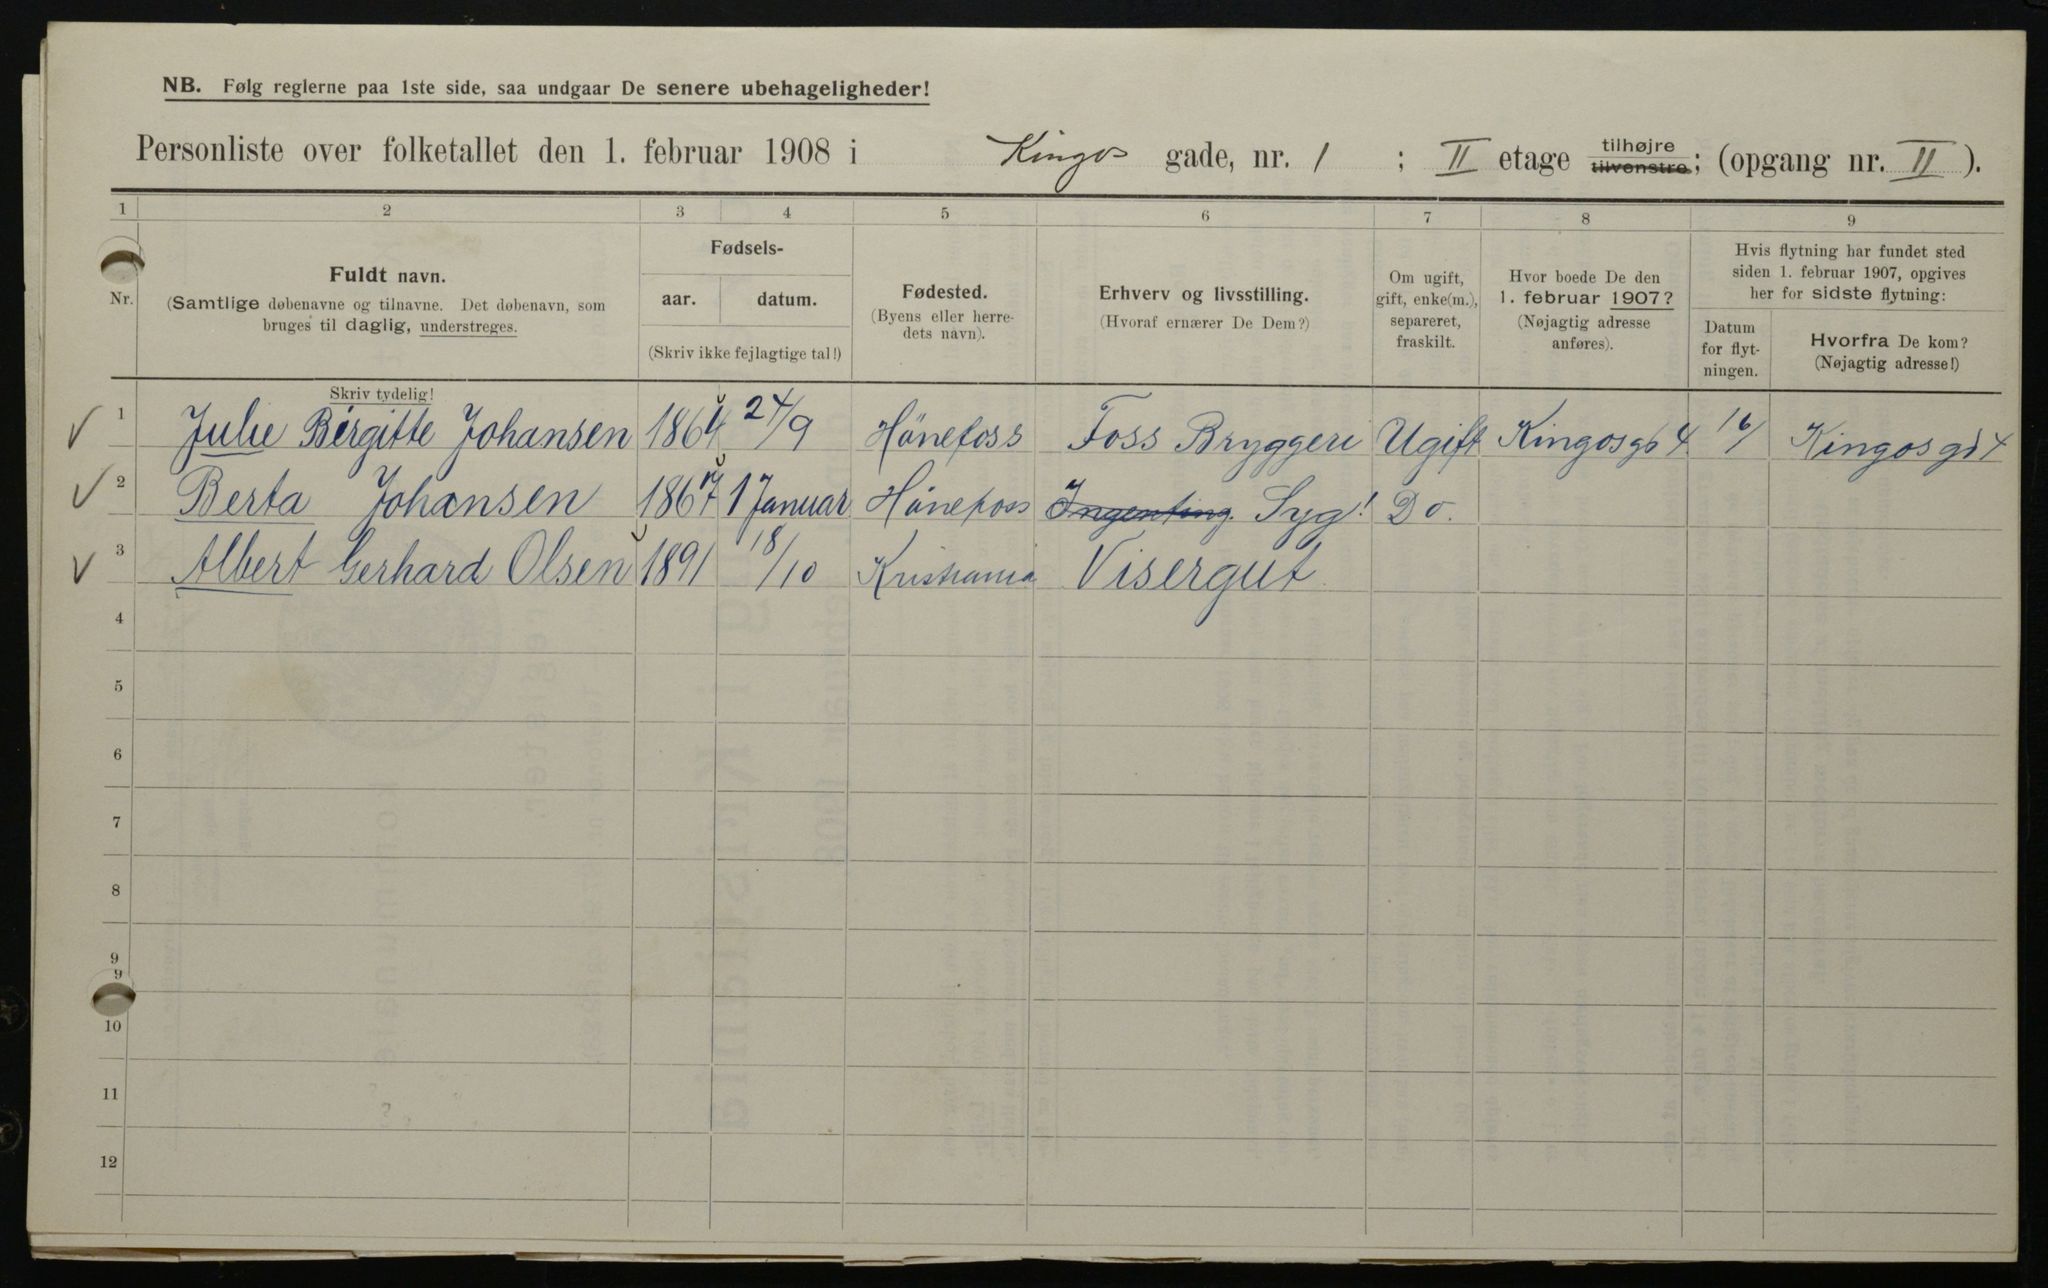 NB. Følg reglerne paa 1ste side, saa undgaar De senere ubehageligheder!
Personliste over folketallet den 1. februar 1908 i Kingos gade, nr. 1 ; II etage tilhøjre tilvenstre; (opgang nr. II ).
1 2 3 4 5 6 7 8 9
Nr.
Fuldt navn.
(Samtlige døbenavne og tilnavne. Det døbenavn, som
bruges til daglig, understreges.
Skriv tydelig!
Fødsels-
aar. datum.
(Skriv ikke fejlagtige tal!)
Fødested.
(Byens eller herre-
dets navn).
Erhverv og livsstilling.
(Hvoraf ernærer De Dem?)
Om ugift,
gift, enke(m.),
separeret,
fraskilt.
Hvor boede De den
1. februar 1907?
(Nøjagtig adresse
anføres).
Hvis flytning har fundet sted
siden 1. februar 1907, opgives
her for sidste flytning:
Datum
for flyt-
ningen.
Hvorfra De kom?
(Nøjagtig adresse!)
1 Julie Birgitte Johansen 1864 24/9 Hönefoss Foss Bryggeri Ugift Kingosgd 4 16/ Kingosgd 4
2 Berta Johansen 1867 1 Januar Hönefoss Ingenting. Syg! Do.
3 Albert Gerhard Olsen 1891 18/10 Kristiania Visergut
4
5
6
7
8
9
9
10
11
12